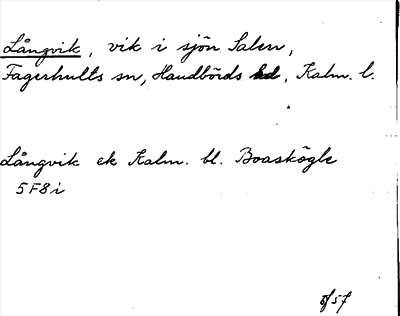 Långvik, vik i sjön Salen,
Fagerhults sn, Handbörds hd, Kalm. l.
Långvik ek Kalm. bl. Boaskögle
5 F 8 i